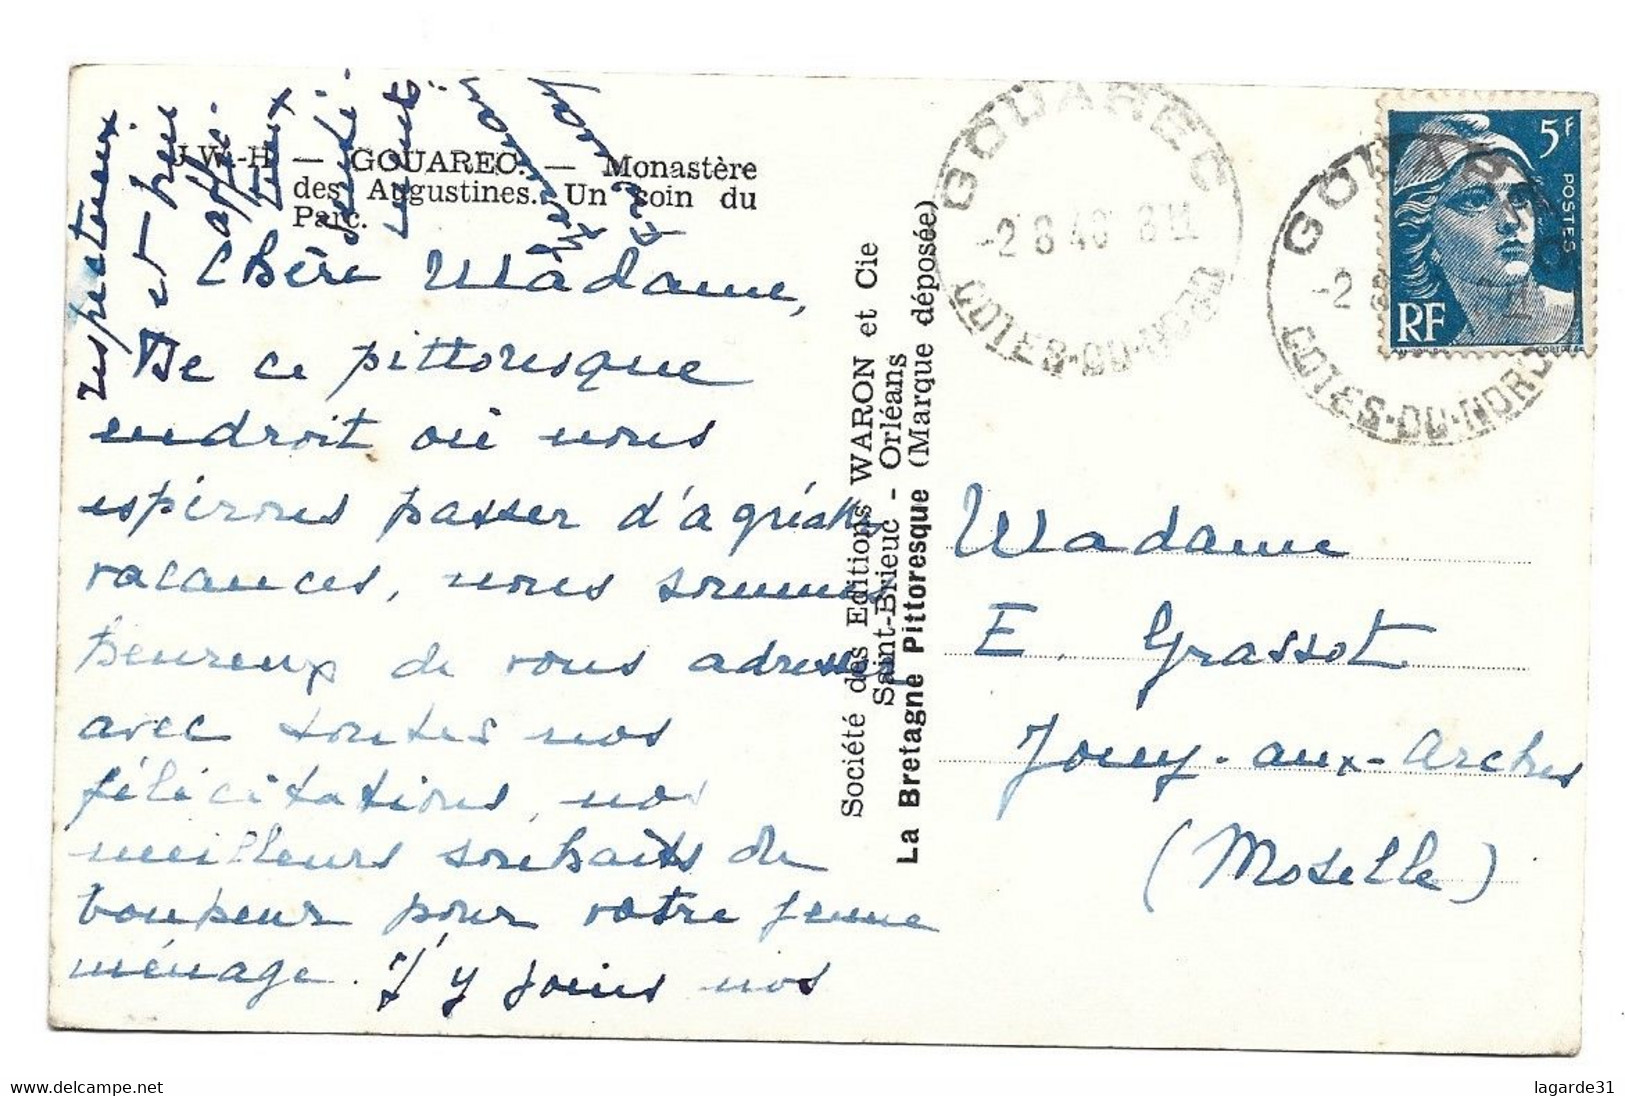 J. W.-H. — GOUAREC. — Monastère
des Augustines. Un coin du
Parc.
Chère Madame,
De ce pittoresque
endroit où nous
espérons passer d'agréables
vacances, nous sommes
heureux de vous adresser
avec toutes nos
félicitations, nos
meilleurs souhaits de
bonheur pour votre jeune
ménage. J'y joins nos
respectueux
et
Société des Editions WARON et Cie
Saint-Brieuc - Orléans
La Bretagne Pittoresque (Marque déposée)
GOUAREC
COTES-DU-NORD
GOUAREC
COTES-DU-NORD
5F
POSTES
RF
Madame
E. Grassot
Jouy-aux-Arches
(Moselle)
www.delcampe.net
lagarde31